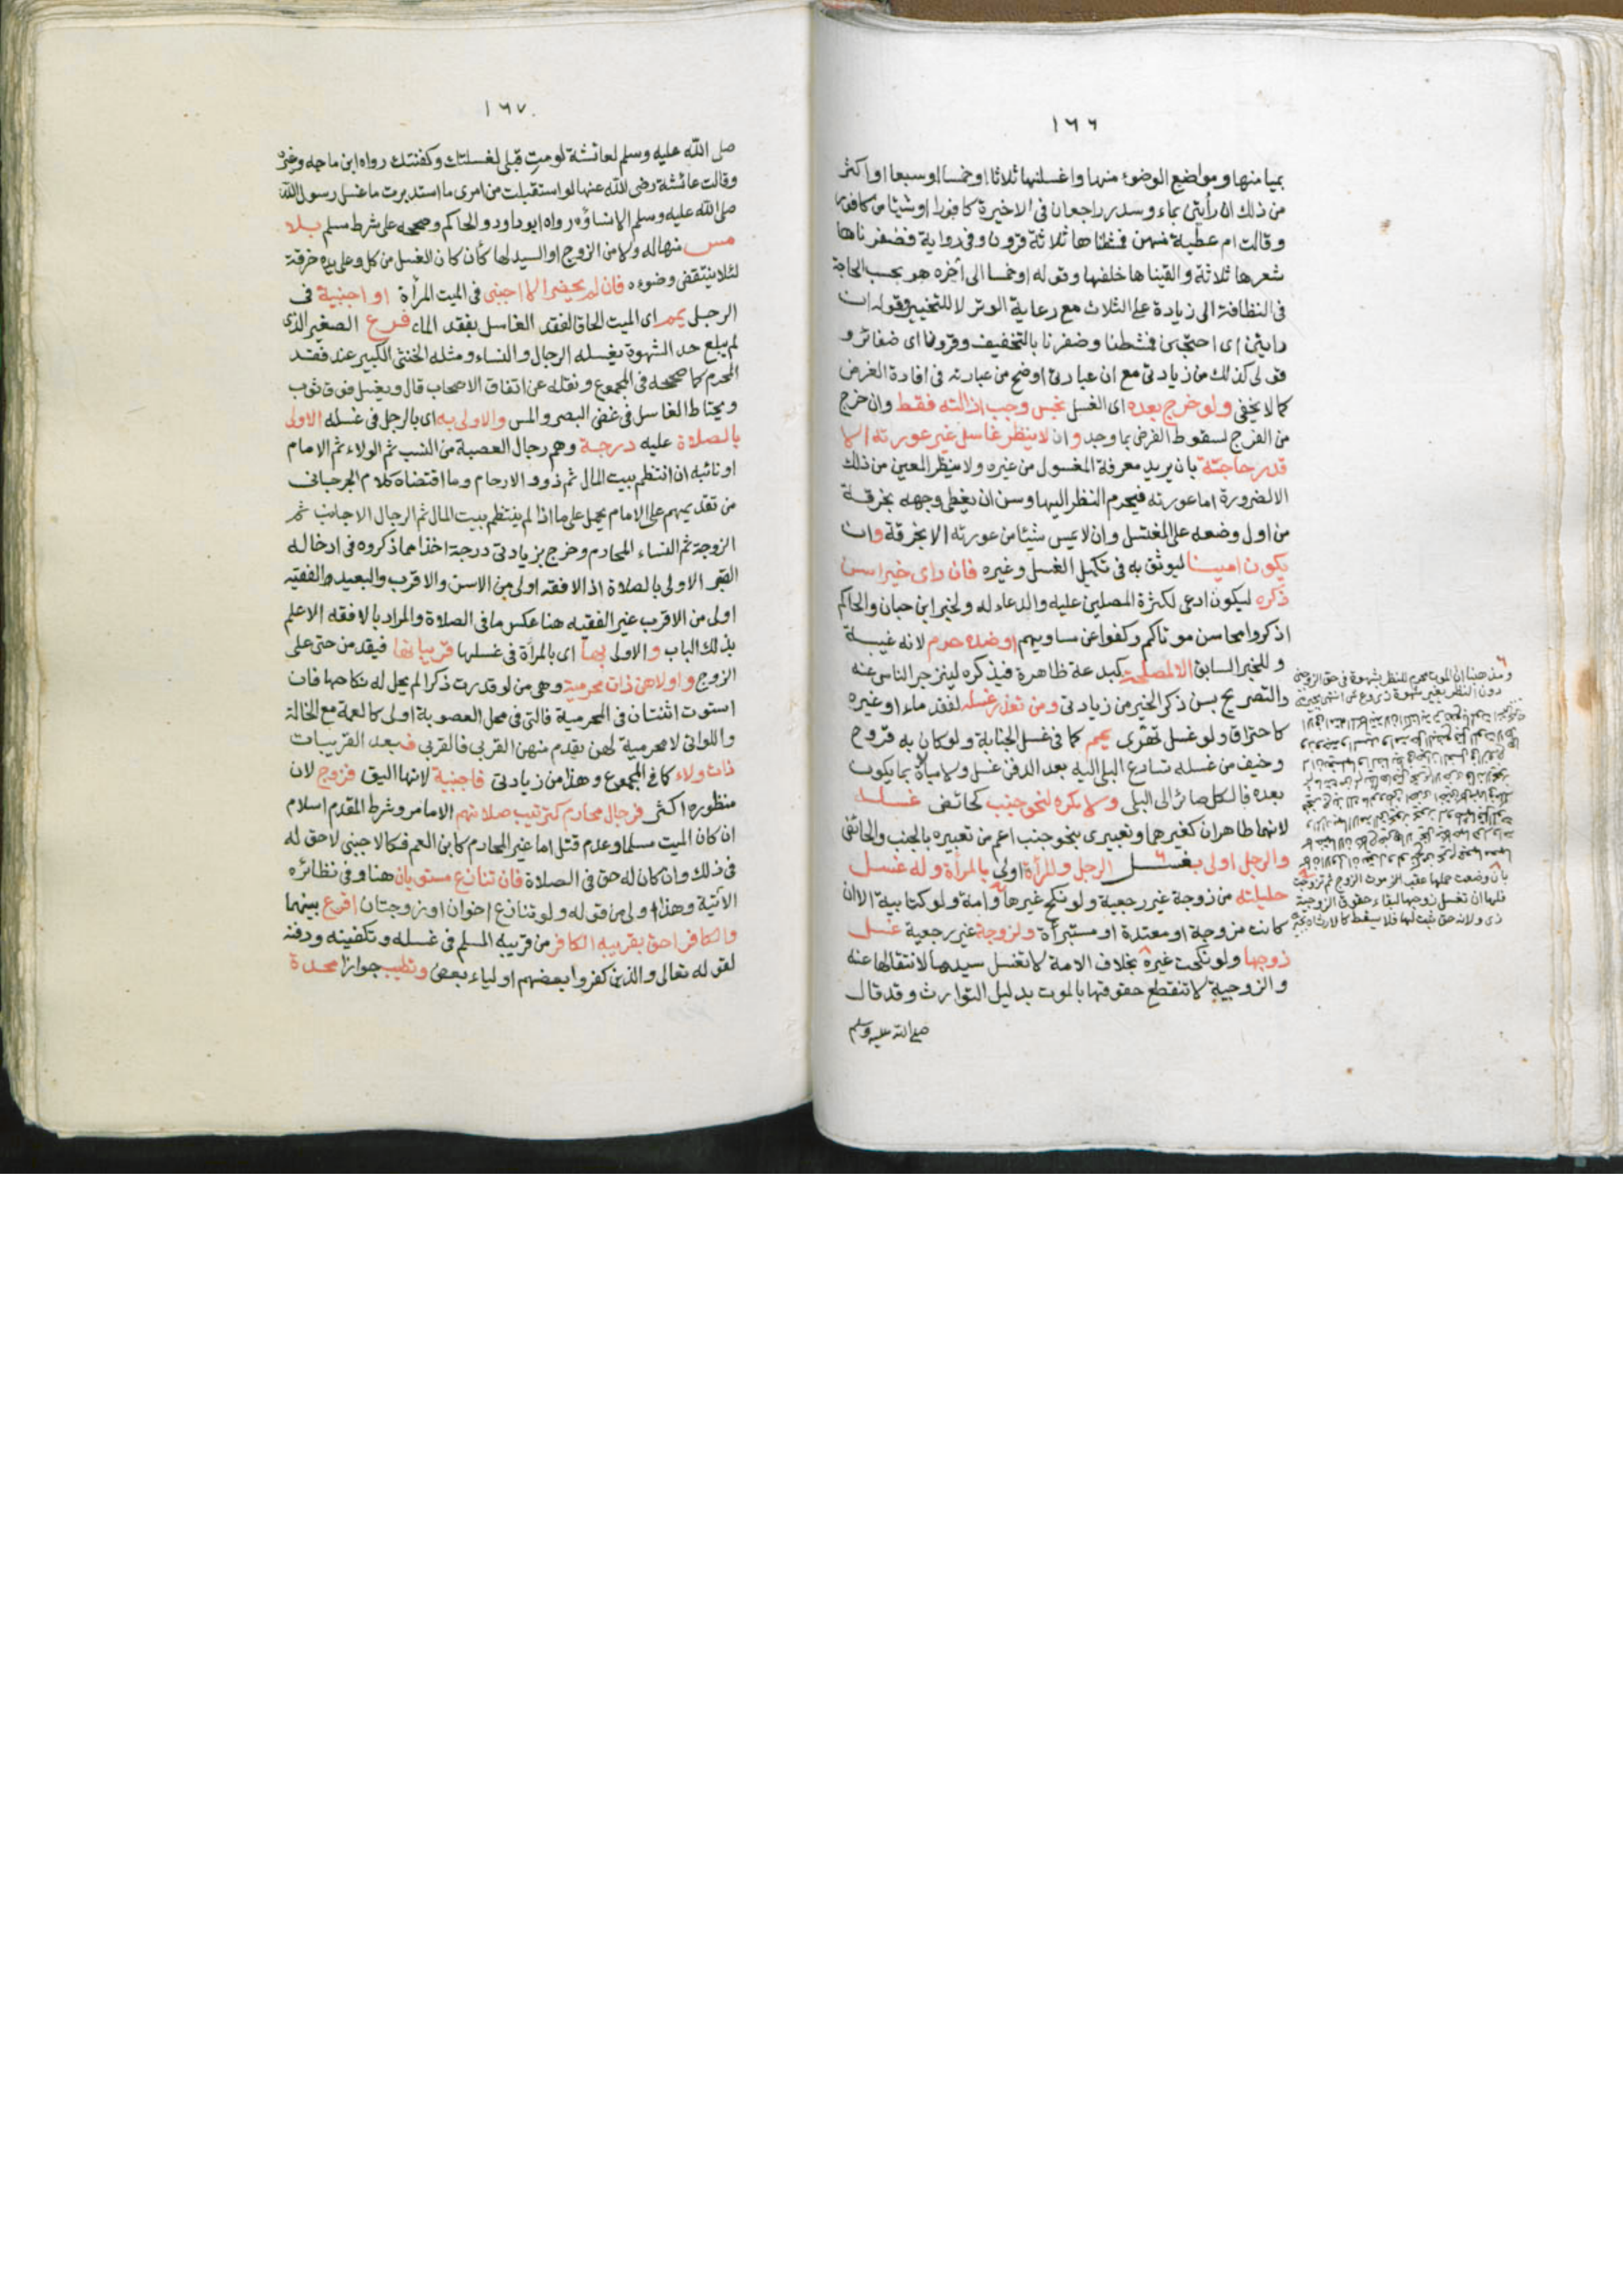 ١٦٦
بميامنها ومواضع الوضوء منها واغسلنها ثلاثا او خمسا او سبعا او اكثر
من ذلك ان رأيتن بماء وسدر راجعان في الاخيرة كافورا او شيئا من كافور
وقالت ام عطية منهن فمشطناها ثلاثة قرون وفي رواية فضفرناها
شعرها ثلاثة والقيناها خلفها وقوله او خمسا الى آخره هو بحسب الحاجة
في النظافة الى زيادة على الثلاث مع رعاية الوتر لا للتخيير وقوله ان
رايتن اى احتجتن فمشطنا وضفرنا بالتخفيف وقرونا اى ضفائر و
قولى كذلك من زيادتى مع ان عبارتى اوضح من عبارته في افادة الغرض
كما لا يخفى ولو خرج بعده اى الغسل نجس وجب ازالته فقط وان خرج
من الفرج لسقوط الفرض بما وجد وان لا ينظر غاسل غير عورته الا
قدر حاجته بان يريد معرفة المغسول من غيره ولا ينظر المعين من ذلك
الا لضرورة اما عورته فيحرم النظر اليها وسن ان يغطى وجهه بخرقة
من اول وضعه على المغتسل وان لا يمس شيئا من عورته الا بخرقة وان
يكون امينا ليوثق به في تكميل الغسل وغيره فان راى خيرا سن
ذكره ليكون ادعى لكثرة المصلين عليه والدعاء له ولخبر ابن حبان والحاكم
اذكروا محاسن موتاكم وكفوا عن مساويهم او ضده حرم لانه غيبة
وللخبر السابق الا لمصلحة كبدعة ظاهرة فيذكره لينزجر الناس عنه
والتصريح بسن ذكر الخير من زيادتى ومن تعذر غسله لفقد ماء او غيره
كاحتراق ولو غسل تهرى يمم كما في غسل الجنابة ولو كان به قروح
وخيف من غسله تسارع البلى اليه بعد الدفن غسل ولا مبالاة بما يكون
بعده فالكل صائر الى البلى ولا يكره لنحو جنب كحائض غسله
لانهما طاهران كغيرهما وتعبيرى بنحو جنب اعم من تعبيره بالجنب والحائض
والرجل اولى بغسل الرجل والمرأة اولى بالمرأة وله غسل
حليلته من زوجة غير رجعية ولو نكح غيرها وامة ولو كتابية الا ان
كانت مزوجة او معتدة او مستبرأة ولزوجة غير رجعية غسل
زوجها ولو نكحت غيره بخلاف الامة لا تغسل سيدها لانتقالها عنه
والزوجية لا تنقطع حقوقها بالموت بدليل التوارث وقد قال
صلى الله عليه وسلم
ومذهبنا ان الموت محرم للنظر بشهوة في حق الزوجة
دون النظر بغير شهوة
بأن وضعت حملها عقب الزموت الزوج ثم تزوجت
فلها ان تغسل زوجها لبقاء حقوق الزوجية
ولانه حق ثبت لها فلا يسقط كالارث
١٦٧
صلى الله عليه وسلم لعائشة لو مت قبلى لغسلتك وكفنتك رواه ابن ماجه وغيره
وقالت عائشة رضى الله عنها لو استقبلت من امرى ما استدبرت ما غسل رسول الله
صلى الله عليه وسلم الا نساؤه رواه ابو داود والحاكم وصححه على شرط مسلم بلا
مس منها له ولا من الزوج او السيد لها كأن كان الغسل من كل وعلى يده خرقة
لئلا ينتقض وضوءه فان لم يحضر الا اجنبى في الميت المرأة او اجنبية في
الرجل يمم اى الميت الحاقا لفقد الغاسل بفقد الماء فرع الصغير الذى
لم يبلغ حد الشهوة يغسله الرجال والنساء ومثله الخنثى الكبير عند فقد
المحرم كما صححه في المجموع ونقله عن اتفاق الاصحاب قال ويغسل فوق ثوب
ويحتاط الغاسل في غض البصر والمس والاولى به اى بالرجل في غسله الاولى
بالصلاة عليه درجة وهم رجال العصبة من النسب ثم الولاء ثم الامام
او نائبه ان انتظم بيت المال ثم ذوو الارحام وما اقتضاه كلام الجرجانى
من تقديمهم على الامام يحمل على ما اذا لم ينتظم بيت المال ثم الرجال الاجانب ثم
الزوجة ثم النساء المحارم وخرج بزيادتى درجة اخذا مما ذكروه في ادخاله
القبر الاولى بالصلاة اذ الافقه اولى من الاسن والاقرب والبعيد والفقيه
اولى من الاقرب غير الفقيه هنا عكس ما في الصلاة والمراد بالافقه الاعلم
بذلك الباب والاولى بها اى بالمرأة في غسلها قريباتها فيقدمن حتى على
الزوج واولاهن ذات محرمية وهى من لو قدرت ذكرا لم يحل له نكاحها فان
استوت اثنتان في المحرمية فالتى في محل العصوبة اولى كالعمة مع الخالة
واللواتى لا محرمية لهن يقدم منهن القربى فالقربى فبعد القريبات
ذات ولاء كما في المجموع وهذا من زيادتى فاجنبية لانها اليق فزوج لان
منظوره اكثر فرجال محارم كترتيب صلاتهم الا ما مر وشرط المقدم اسلام
ان كان الميت مسلما وعدم قتل اما غير المحارم كابن العم فكالاجنبى لا حق له
في ذلك وان كان له حق في الصلاة فان تنازع مستويان هنا وفي نظائره
الآتية وهذا اولى من قوله ولو تنازع اخوان او زوجتان اقرع بينهما
والكافر احق بقريبه الكافر من قريبه المسلم في غسله وتكفينه ودفنه
لقوله تعالى والذين كفروا بعضهم اولياء بعض وتطيب جوازا محدة